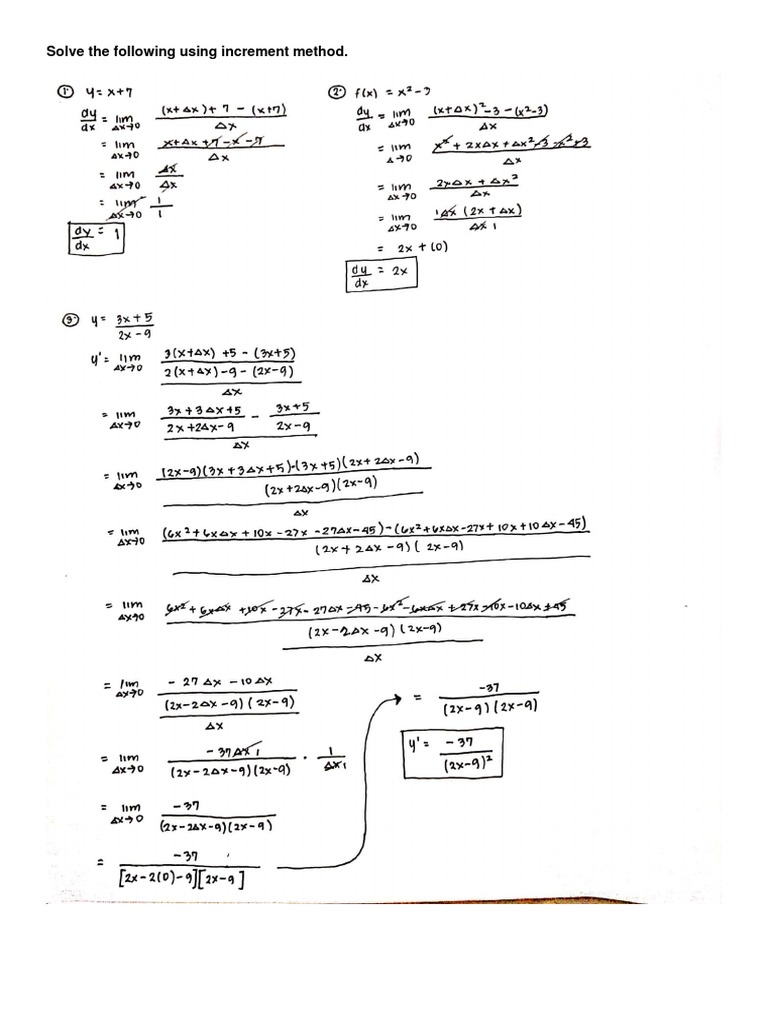 Solve the following using increment method.
① y = x + 7
dy/dx = lim Δx→0 ((x + Δx) + 7 - (x+7))/Δx
= lim Δx→0 (x + Δx + 7 - x - 7)/Δx
= lim Δx→0 Δx/Δx
= lim Δx→0 1/1
dy/dx = 1
② f(x) = x² - 3
dy/dx = lim Δx→0 ((x + Δx)² - 3 - (x² - 3))/Δx
= lim Δ→0 (x² + 2xΔx + Δx² - 3 - x² + 3)/Δx
= lim Δx→0 (2xΔx + Δx²)/Δx
= lim Δx→0 (1Δx (2x + Δx))/(Δx 1)
= 2x + (0)
dy/dx = 2x
③ y = (3x + 5)/(2x - 9)
y' = lim Δx→0 ((3(x+Δx) + 5 - (3x+5))/(2(x+Δx) - 9 - (2x-9)))/Δx
= lim Δx→0 ((3x + 3Δx + 5)/(2x + 2Δx - 9) - (3x + 5)/(2x - 9))/Δx
= lim Δx→0 (((2x-9)(3x + 3Δx + 5) - (3x+5)(2x + 2Δx - 9))/((2x + 2Δx - 9)(2x-9)))/Δx
= lim Δx→0 (((6x² + 6xΔx + 10x - 27x - 27Δx - 45) - (6x² + 6xΔx - 27x + 10x + 10Δx - 45))/((2x + 2Δx - 9)(2x-9)))/Δx
= lim Δx→0 ((6x² + 6xΔx + 10x - 27x - 27Δx - 45 - 6x² - 6xΔx + 27x - 10x - 10Δx + 45)/((2x - 2Δx - 9)(2x-9)))/Δx
= lim Δx→0 ((-27Δx - 10Δx)/((2x - 2Δx - 9)(2x-9)))/Δx
= lim Δx→0 (-37Δx 1)/((2x - 2Δx - 9)(2x-9)) · 1/(Δx 1)
= lim Δx→0 -37/((2x - 2Δx - 9)(2x-9))
= -37/([2x - 2(0) - 9][2x-9])
= -37/((2x-9)(2x-9))
y' = -37/(2x-9)²